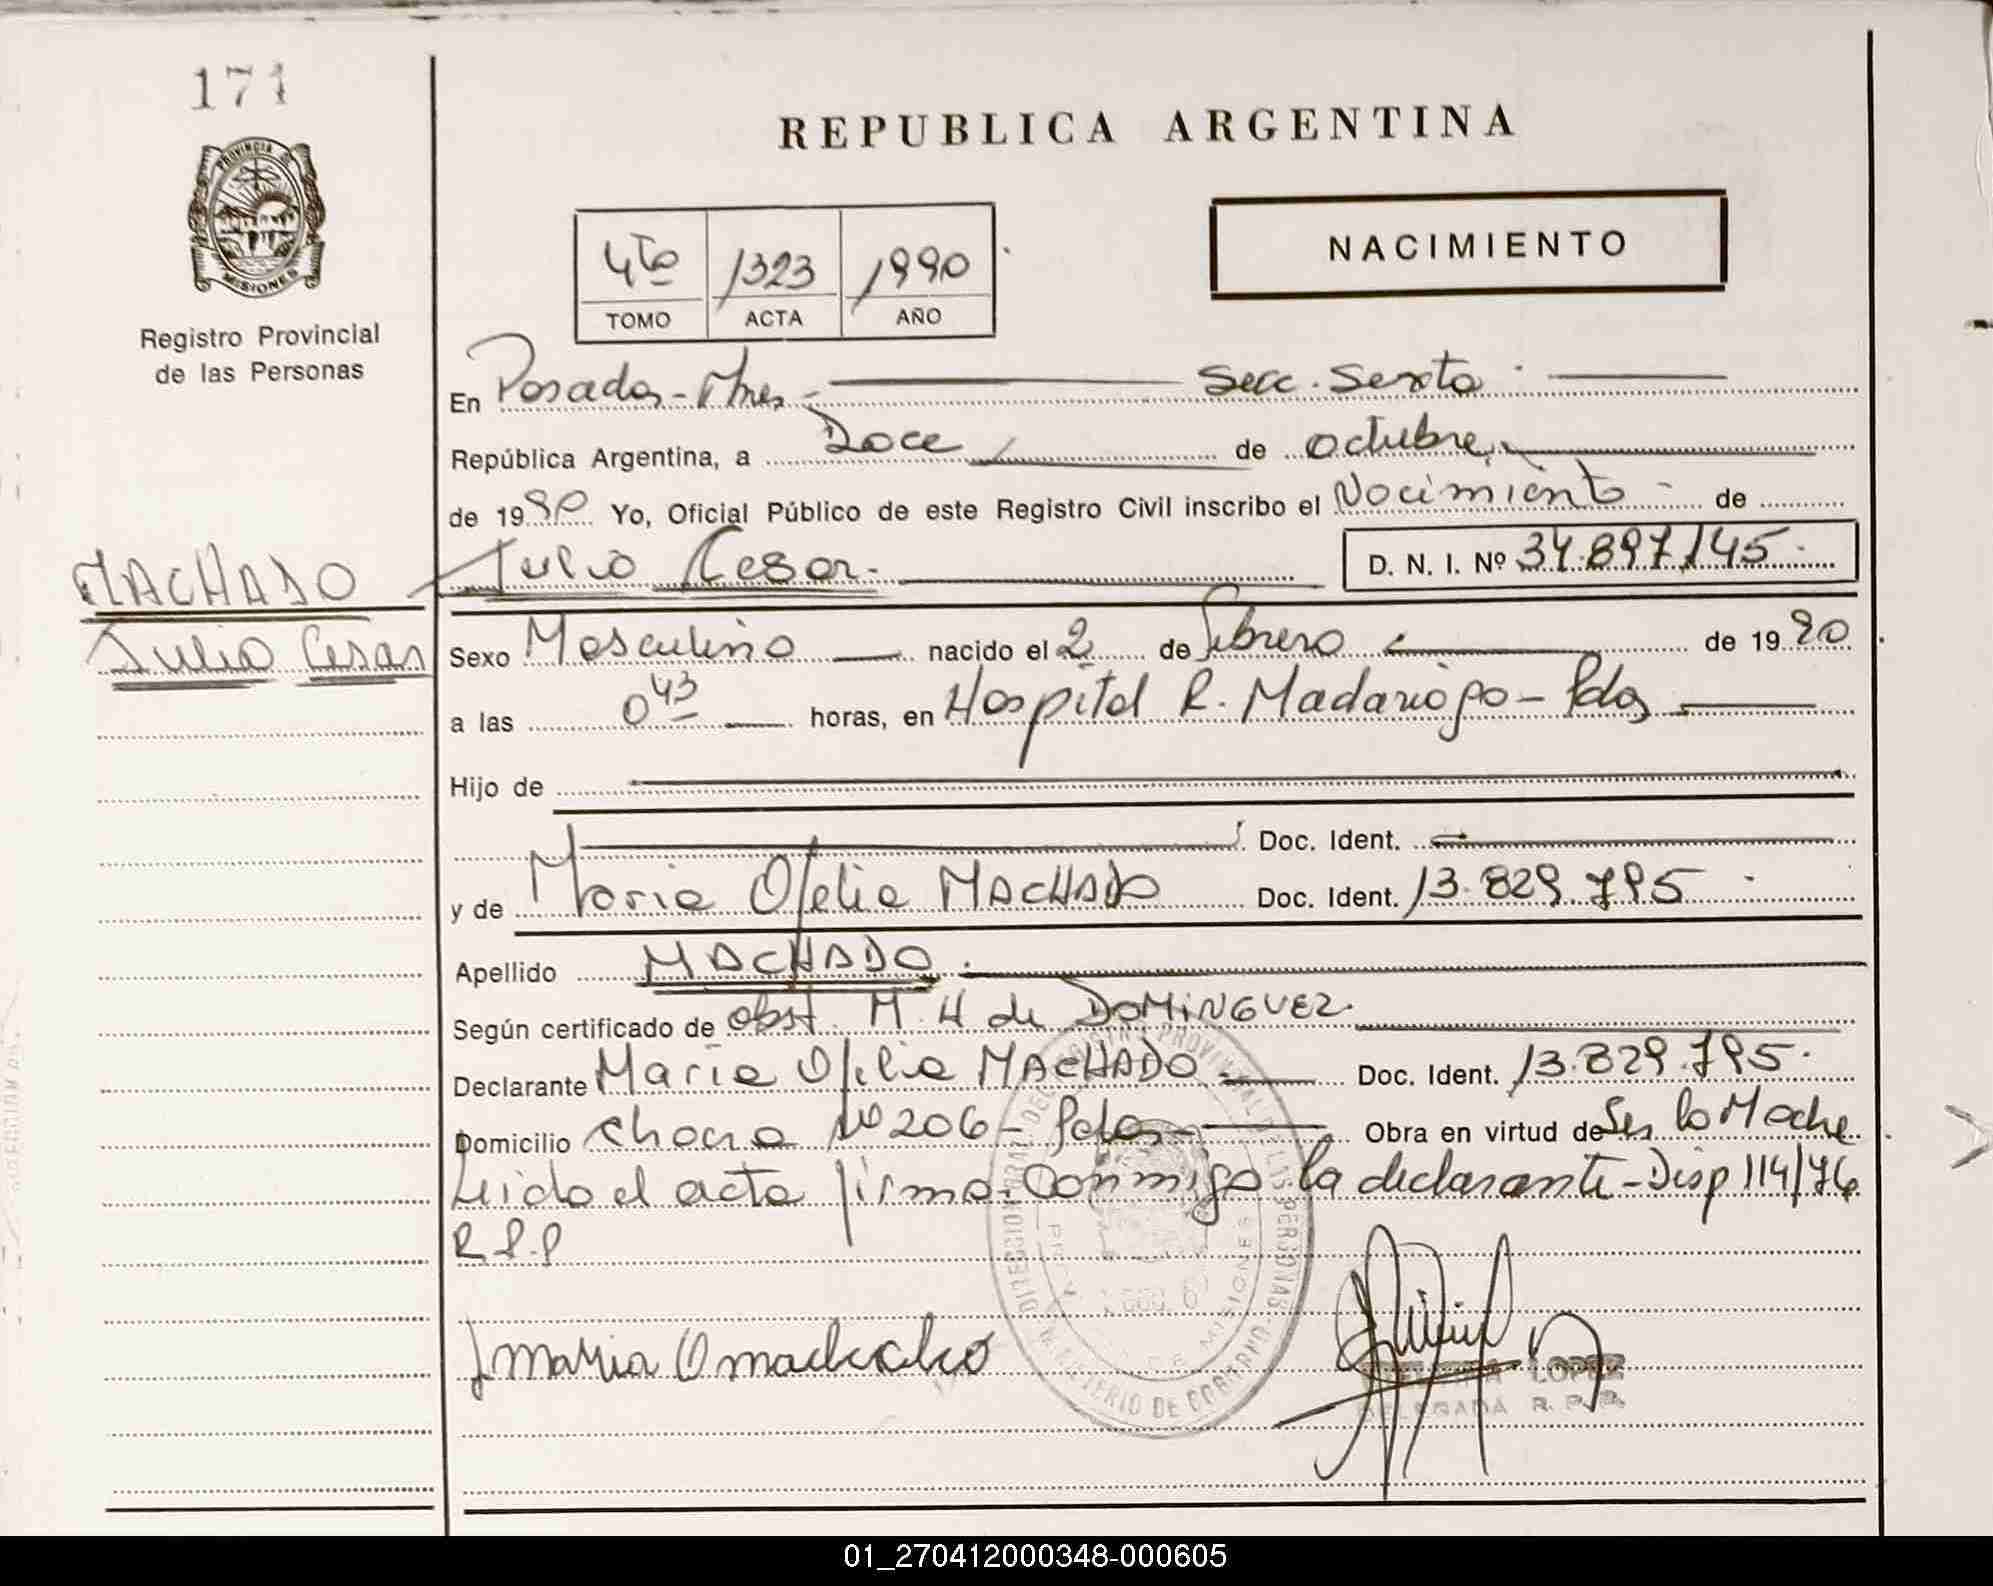 171
PROVINCIA DE
MISIONES
Registro Provincial
de las Personas
MACHADO
Julio Cesar
REPUBLICA ARGENTINA
NACIMIENTO
4to 1323 1990
TOMO ACTA AÑO
En Posadas - Mnes - Secc. Sexta
República Argentina, a Doce de octubre
de 1990 Yo, Oficial Público de este Registro Civil inscribo el Nacimiento - de
Julio Cesar - D. N. I. Nº 34.897.145
Sexo Masculino nacido el 2 de febrero de 1990
a las 0 43 horas, en Hospital R. Madariaga - Pdas
Hijo de
Doc. Ident.
y de Maria Ofelia MACHADO Doc. Ident. 13.829.795
Apellido MACHADO
Según certificado de obst. M. H de DOMINGUEZ
Declarante Maria Ofelia MACHADO Doc. Ident. 13.829.795
Domicilio Chacra Nº 206 - Pdas - Obra en virtud de Ser la Madre
Leida el acta firma conmigo la declarante - Disp 114/76
R.P.P
Maria O machado
LOPEZ
DELEGADA R. P. P.
MINISTERIO DE GOBIERNO
MISIONES
01_270412000348-000605